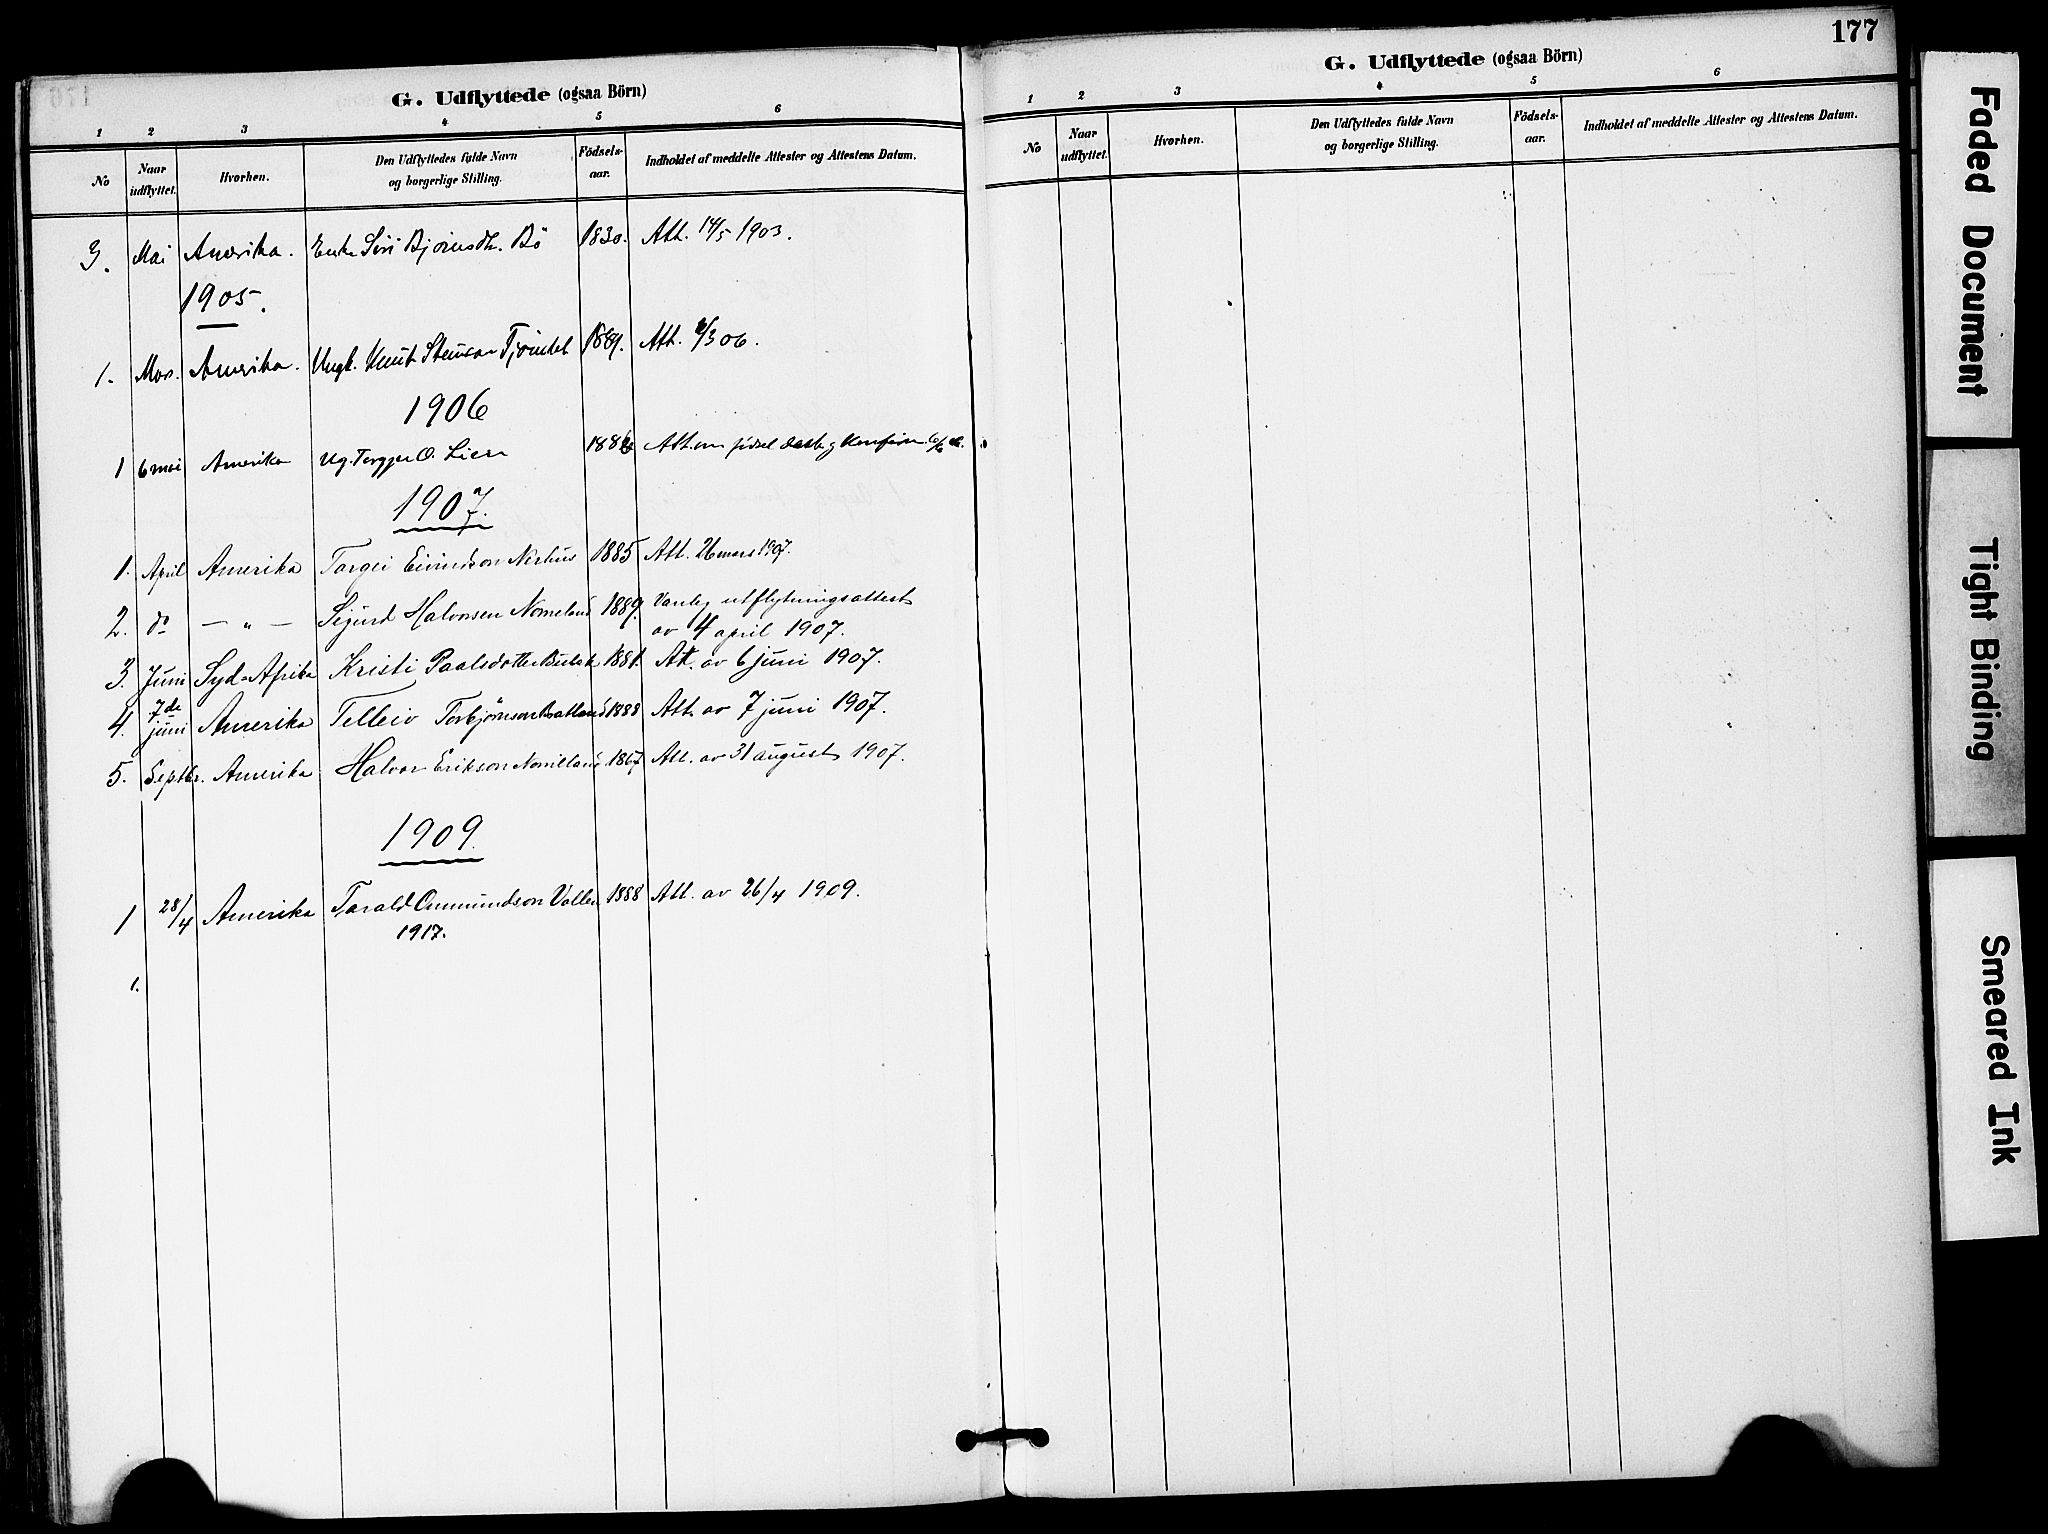 G. Udflyttede (ogsaa Börn)
1 2 3 4 5 6
No Naar udflyttet. Hvorhen. Den Udflyttedes fulde Navn og borgerlige Stilling. Födsels-aar. Indholdet af meddelte Attester og Attestens Datum.
3. Mai Amerika. Enke Siri Bjørnsdtr. Bö 1830. Att. 14/5 1903.
1905.
1. Mars. Amerika. Ungk. Knut Steinson 1889. Att. /3 06.
1906
1 6 mai Amerika Ug. Torgjer O. Lien 1886 Att. om födsel daab og Konfirm.
1907.
1. April Amerika Torgei Eivindson Nerhus 1885 Att. 26 mars 1907.
2. do — „ — Sigurd Halvorsen Nomeland 1889. Vanleg utflytningsattest
av 4 april 1907.
3. Juni Syd-Afrika Kristi Paalsdotter 1881. Att. av 6 juni 1907.
4. 7de juni Amerika Telleiv Torbjörnson 1888 Att. av 7 juni 1907.
5. Septbr. Amerika Halvor Erikson Nomeland 1867 Att. av 31 august 1907.
1909.
1 28/4 Amerika Tarald Ommundson Valle 1888 Att. av 26/4 1909.
1917.
1.
177
G. Udflyttede (ogsaa Börn)
1 2 3 4 5 6
No Naar udflyttet. Hvorhen. Den Udflyttedes fulde Navn og borgerlige Stilling. Födsels-aar. Indholdet af meddelte Attester og Attestens Datum.
Faded Document
Tight Binding
Smeared Ink